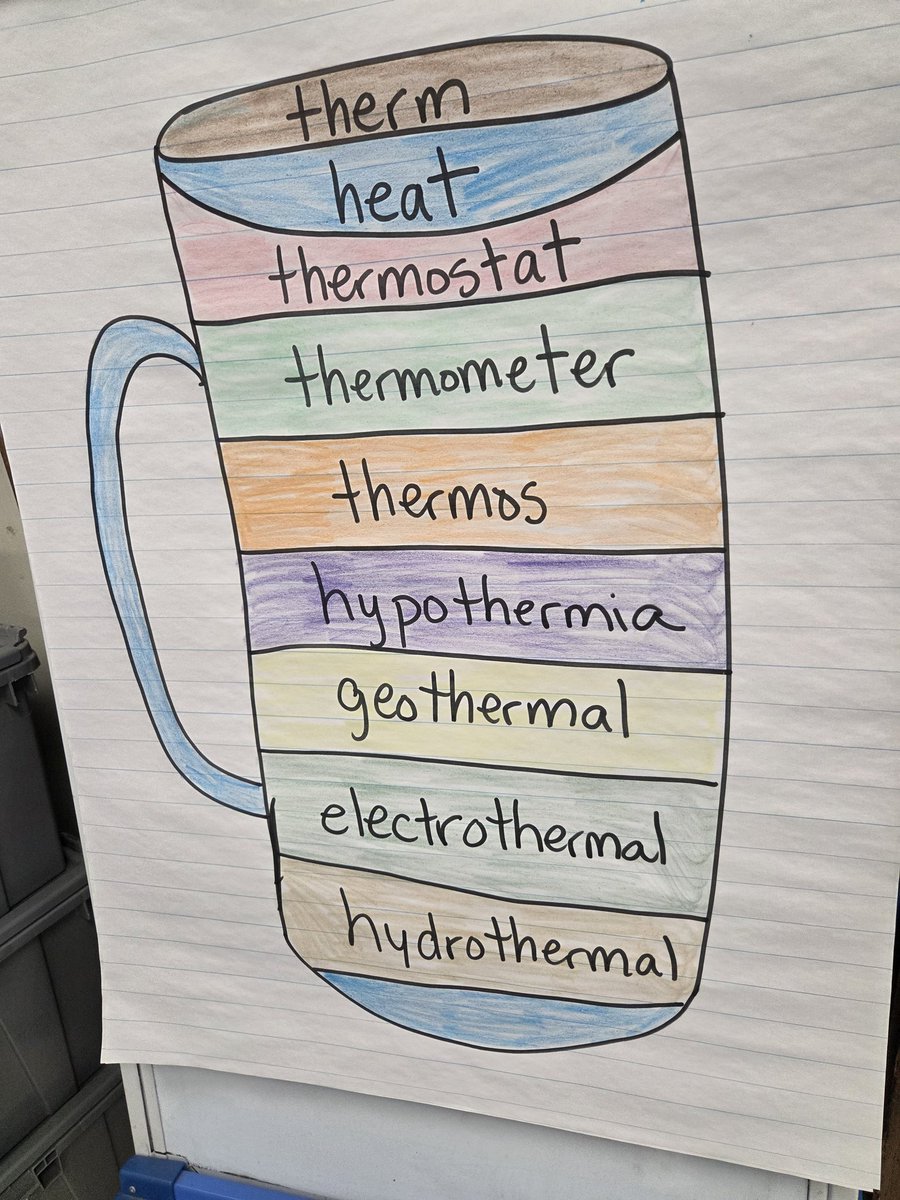 therm
heat
thermostat
thermometer
thermos
hypothermia
geothermal
electrothermal
hydrothermal